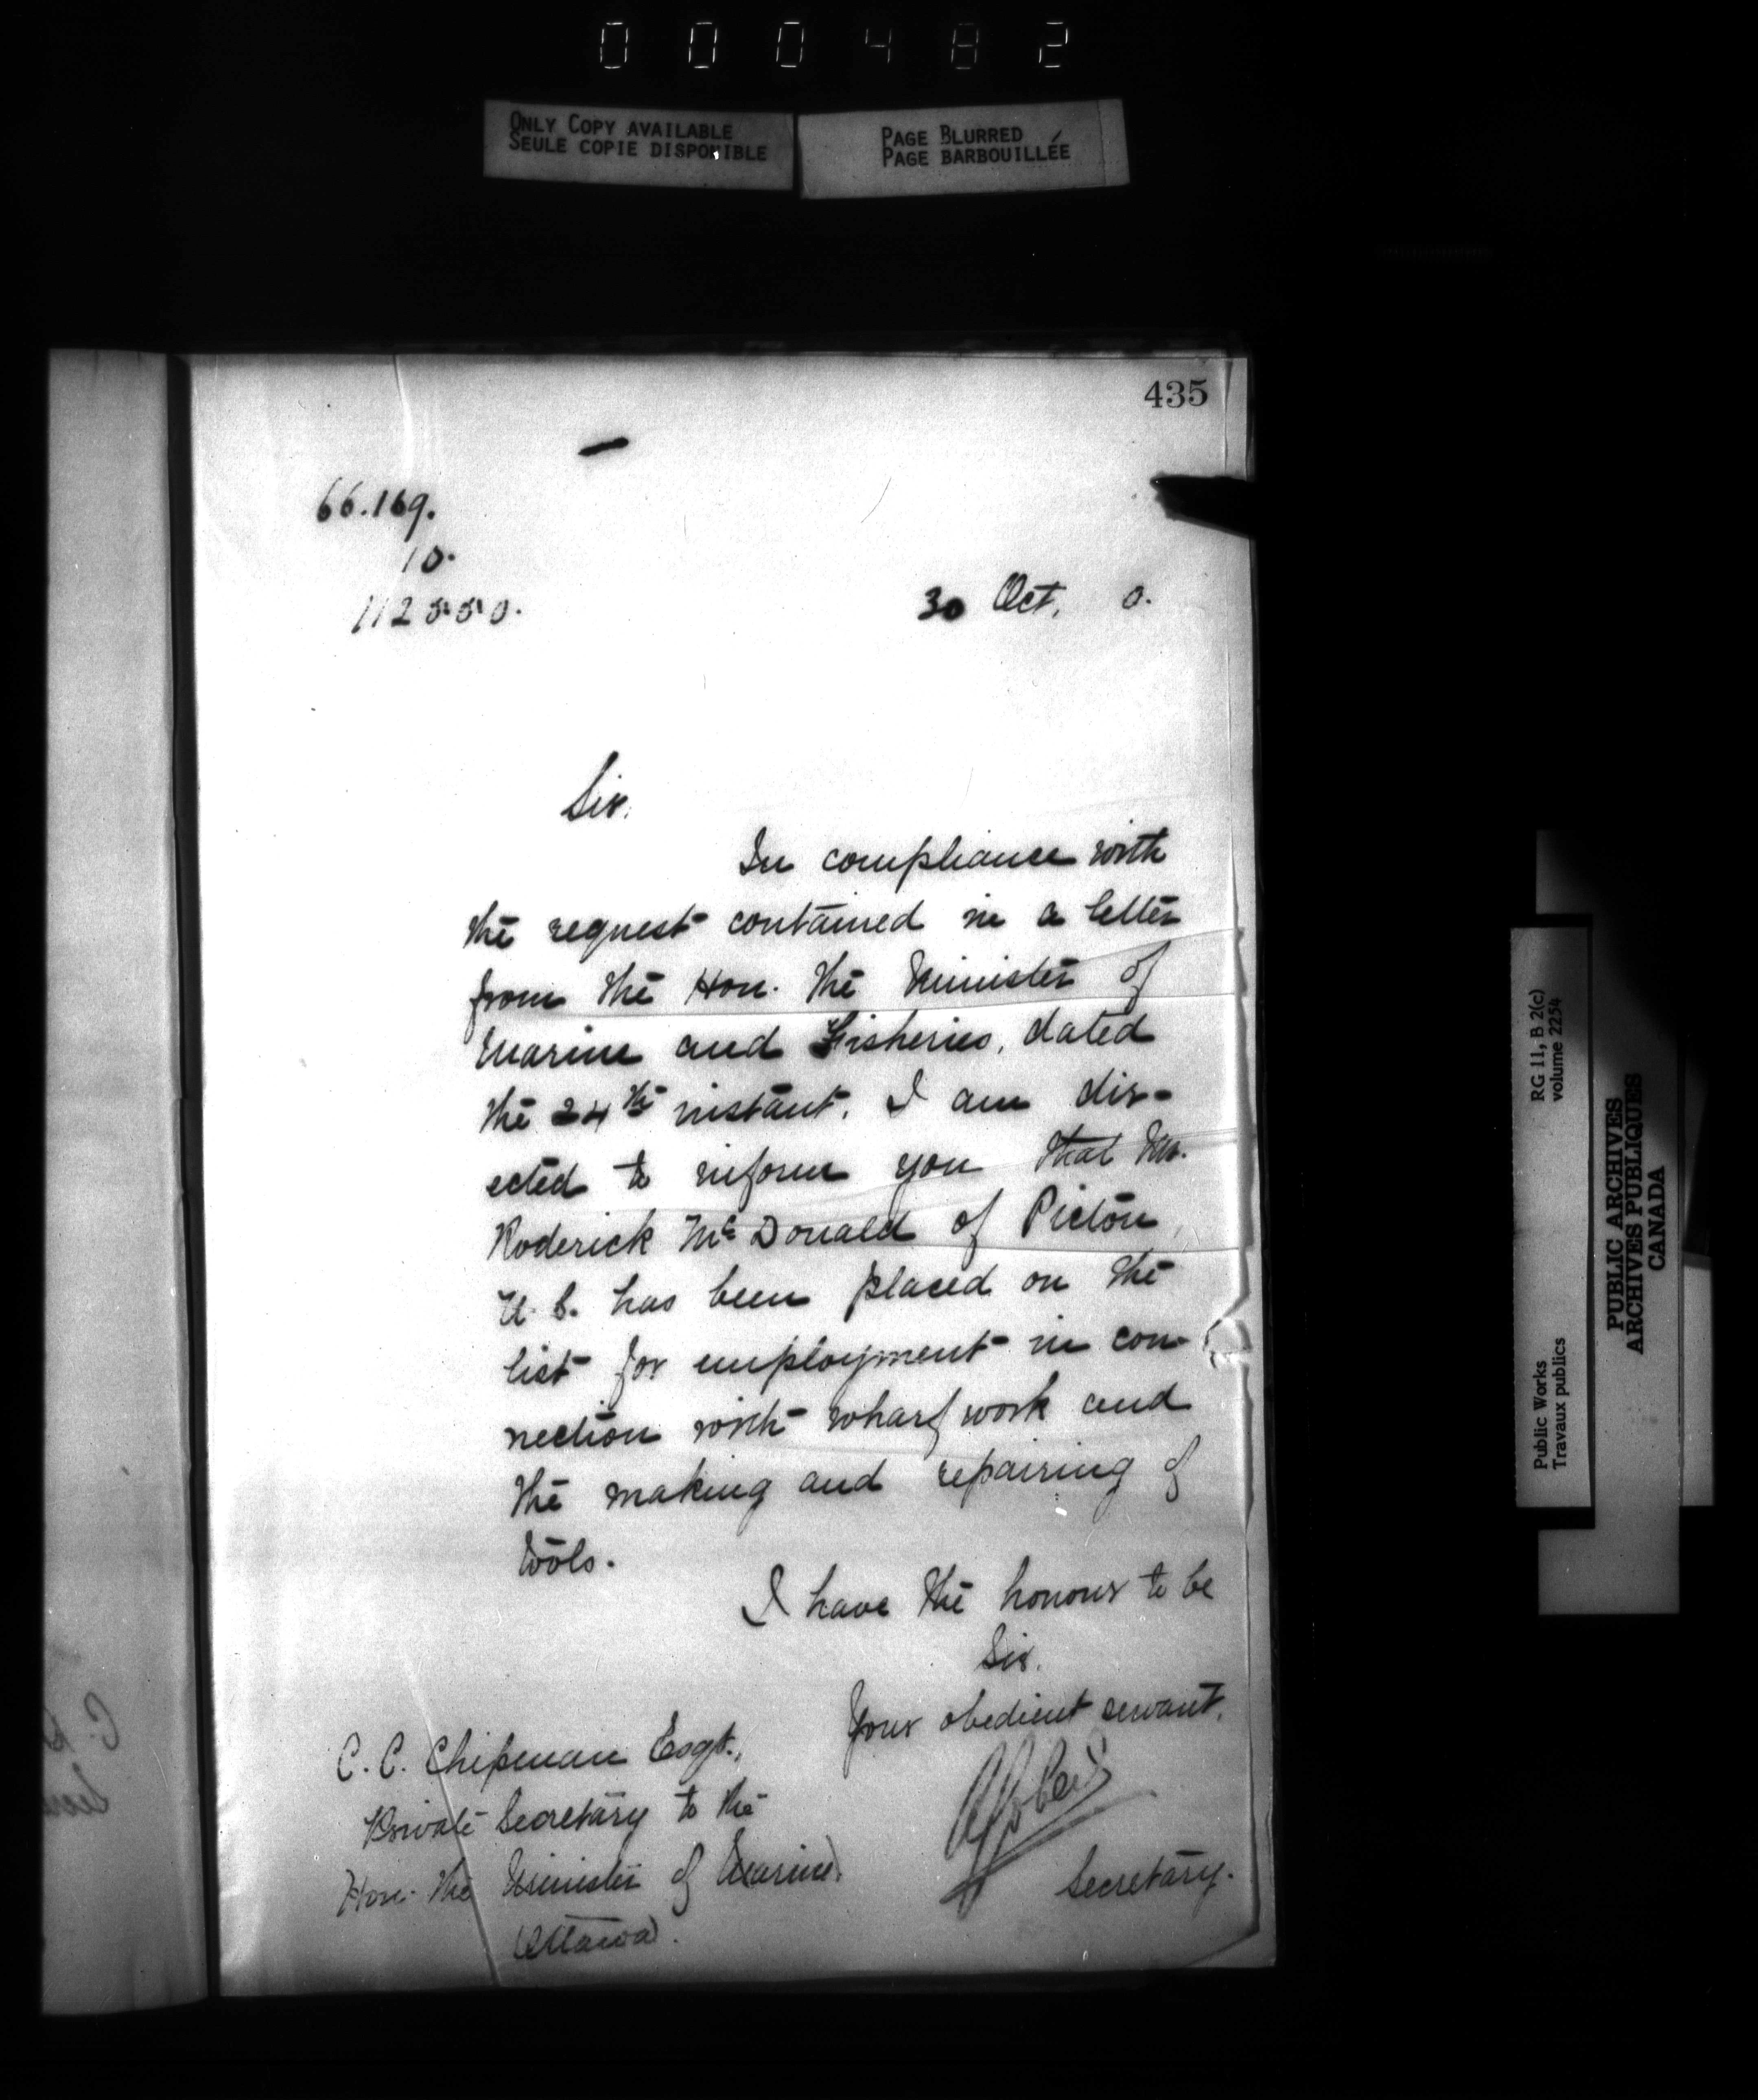 000482
ONLY COPY AVAILABLE
SEULE COPIE DISPONIBLE
PAGE BLURRED
PAGE BARBOUILLÉE
435
66.169.
10.
112550.
30 Oct. 0.
Sir.
In compliance with
the request contained in a letter
from the Hon. the Minister of
Marine and Fisheries, dated
the 24th instant, I am dir-
ected to inform you that Mr.
Roderick McDonald of Pictou,
N.S. has been placed on the
list for employment in con-
nection with wharf work and
the making and repairing of
tools.
I have the honour to be
Sir.
Your obedient servant.
C. C. Chipman Esqr.,
Private Secretary to the
Hon. the Minister of Marine,
Ottawa.
Secretary.
RG 11, B 2(c)
volume 2254
Public Works
Travaux publics
PUBLIC ARCHIVES
ARCHIVES PUBLIQUES
CANADA